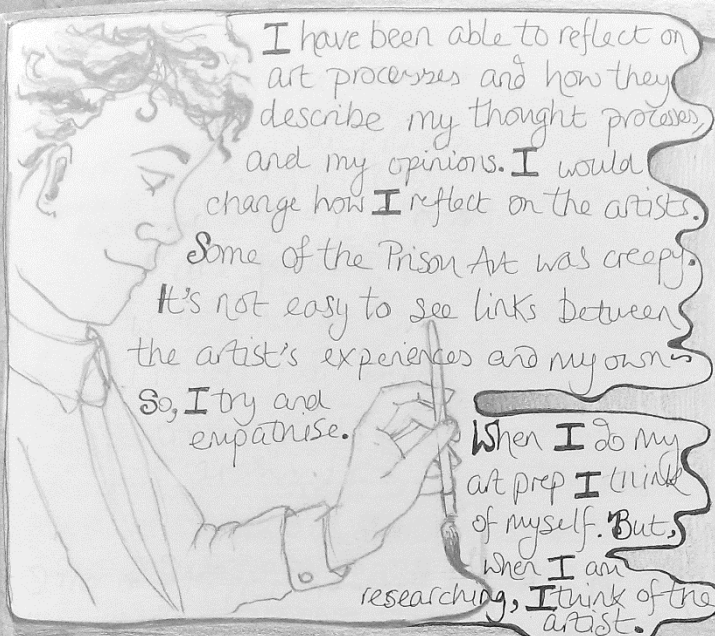 I have been able to reflect on
art processes and how they
describe my thought processes,
and my opinions. I would
change how I reflect on the artists.
Some of the Prison Art was creepy.
It's not easy to see links between
the artist's experiences and my own
So, I try and
empathise.
When I do my
art prep I think
of myself. But,
when I am
researching, I think of the
artist.